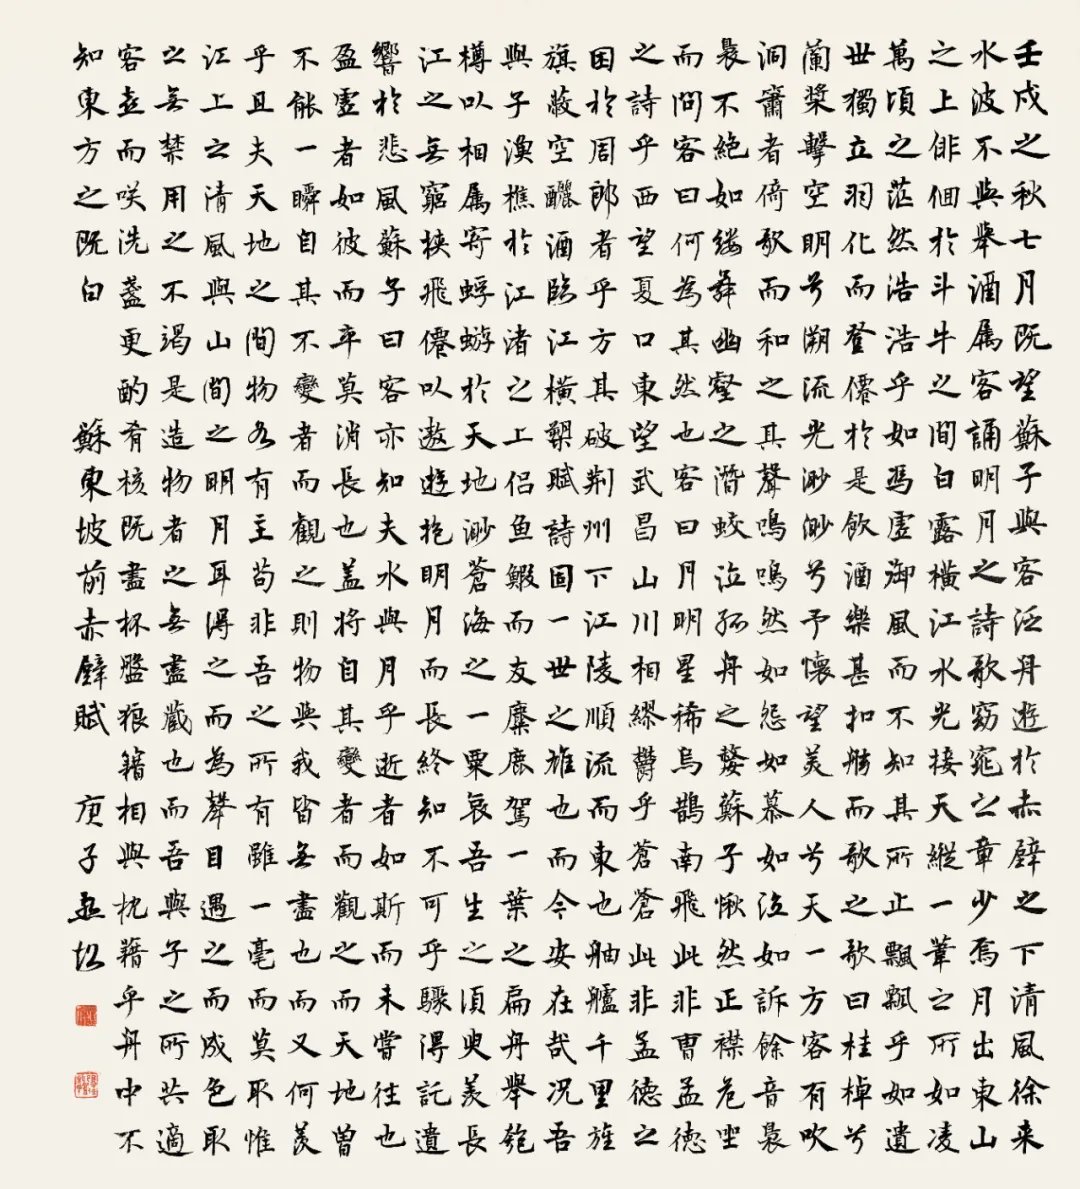 壬戌之秋七月既望蘇子與客泛舟遊於赤壁之下清風徐来
水波不興舉酒属客誦明月之詩歌窈窕之章少焉月出東山
之上俳佪於斗牛之間白露橫江水光接天縱一葦之所如凌
萬頃之茫然浩浩乎如馮虛御風而不知其所止飄飄乎如遺
世獨立羽化而登僊於是飲酒樂甚扣舷而歌之歌曰桂棹兮
蘭槳擊空明兮溯流光渺渺兮予懷望美人兮天一方客有吹
洞簫者倚歌而和之其聲嗚嗚然如怨如慕如泣如訴餘音裊
裊不絕如縷舞幽壑之潛蛟泣孤舟之嫠蘇子愀然正襟危坐
而問客曰何為其然也客曰月明星稀烏鵲南飛此非曹孟德
之詩乎西望夏口東望武昌山川相繆鬱乎蒼蒼此非孟德之
困於周郎者乎方其破荆州下江陵順流而東也舳艫千里旌
旗蔽空釃酒臨江橫槊賦詩固一世之雄也而今安在哉况吾
與子漁樵於江渚之上侣鱼鰕而友麋鹿駕一葉之扁舟舉匏
樽以相属寄蜉蝣於天地渺蒼海之一粟哀吾生之須臾羨長
江之無窮挾飛僊以遨遊抱明月而長終知不可乎驟得託遺
響於悲風蘇子曰客亦知夫水與月乎逝者如斯而未嘗往也
盈虛者如彼而卒莫消長也盖將自其變者而觀之而天地曾
不能一瞬自其不變者而觀之則物與我皆無盡也而又何羨
乎且夫天地之間物各有主苟非吾之所有雖一毫而莫取惟
江上之清風與山間之明月耳得之而為聲目遇之而成色取
之無禁用之不竭是造物者之無盡藏也而吾與子之所共適
客喜而咲洗盞更酌肴核既盡杯盤狼籍相與枕藉乎舟中不
知東方之既白 蘇東坡前赤壁賦 庚子